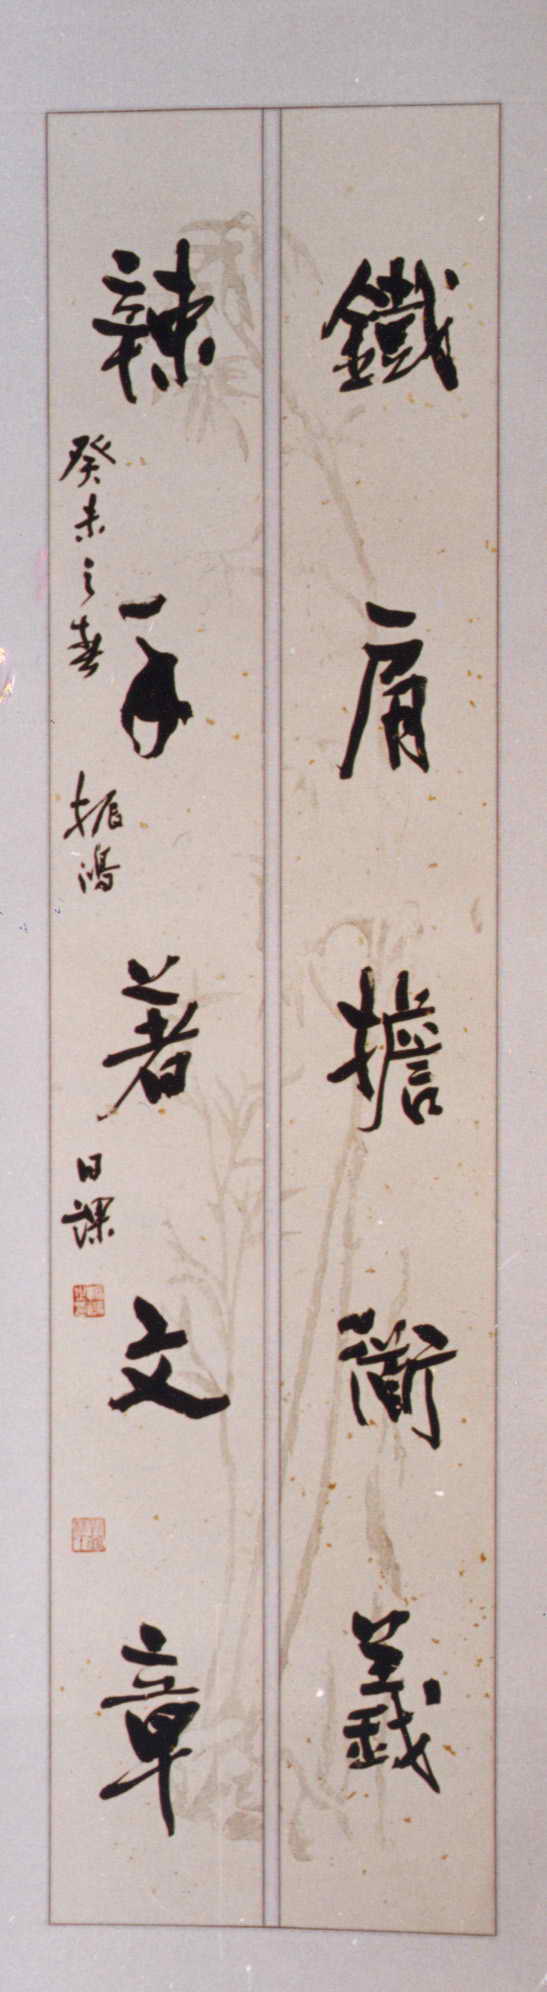 鐵肩擔衜義
辣手著文章
癸未之春
振鴻
日課